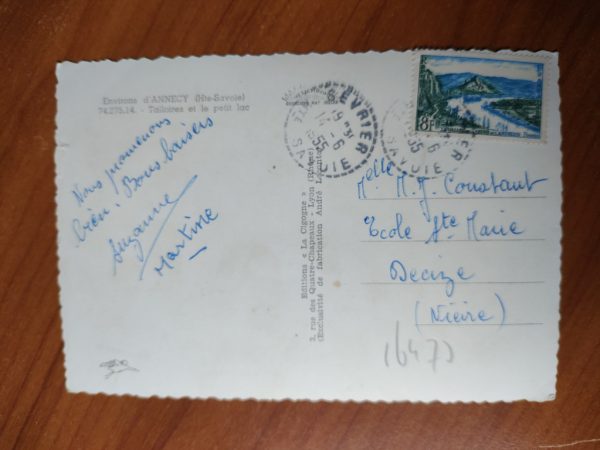 Environs d'ANNECY (Hte-Savoie)
74.275.14. - Talloires et le petit lac
Nous promenons
bien. Bons baisers
Suzanne
Martine
Editions « La Cigogne »
2, rue des Quatre-Chapeaux - Lyon (Rhône)
(Exclusivité de fabrication André Leconte)
SEVRIER
15-6
55
SAVOIE
SAVOIE
8F
Melle M.J Constant
Ecole Ste Marie
Decize
(Nièvre)